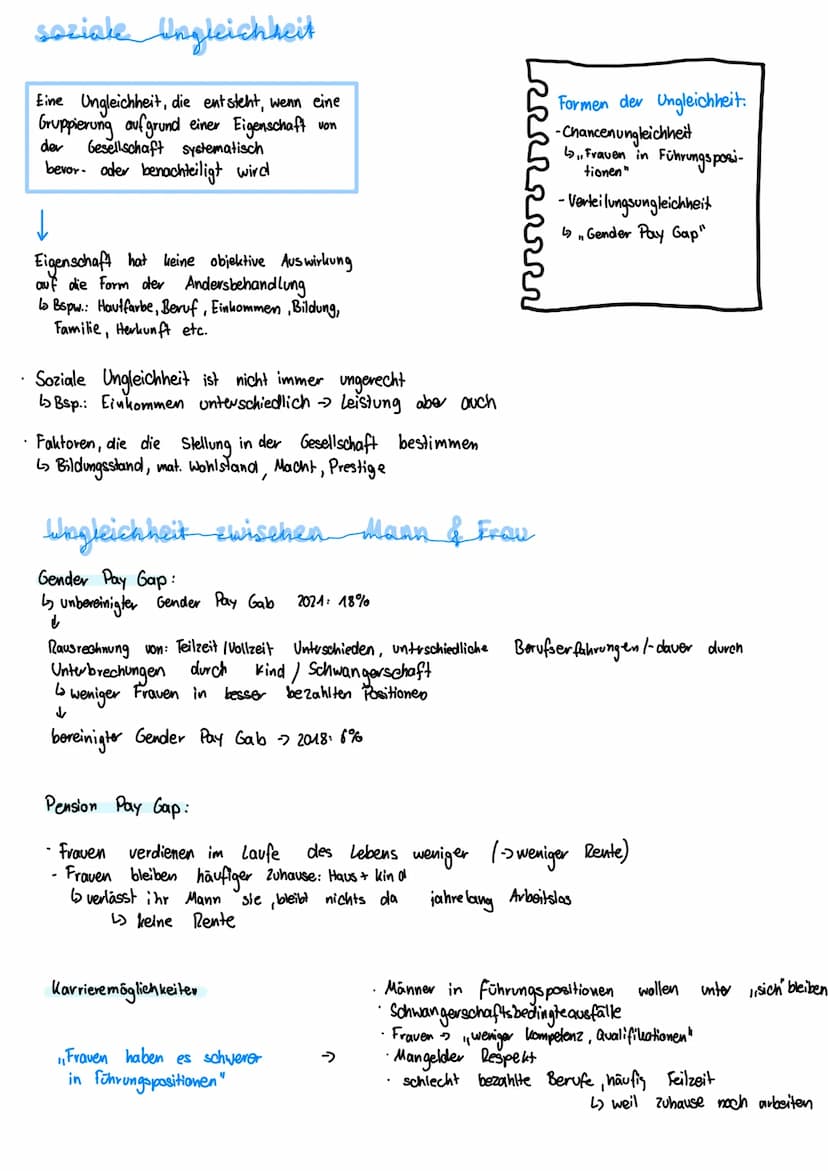 soziale Ungleichheit
Eine Ungleichheit, die entsteht, wenn eine
Gruppierung aufgrund einer Eigenschaft von
der Gesellschaft systematisch
bevor- oder benachteiligt wird
Formen der Ungleichheit:
- Chancenungleichheit
↳ „Frauen in Führungsposi-
tionen"
- Verteilungsungleichheit
↳ „Gender Pay Gap"
↓
Eigenschaft hat keine objektive Auswirkung
auf die Form der Andersbehandlung
↳ Bspw.: Hautfarbe, Beruf, Einkommen, Bildung,
Familie, Herkunft etc.
· Soziale Ungleichheit ist nicht immer ungerecht
↳ Bsp.: Einkommen unterschiedlich → Leistung aber auch
· Faktoren, die die Stellung in der Gesellschaft bestimmen
↳ Bildungsstand, mat. Wohlstand, Macht, Prestige
Ungleichheit zwischen Mann & Frau
Gender Pay Gap:
↳ unbereinigter Gender Pay Gab 2021: 18%
↓
Rausrechnung von: Teilzeit/Vollzeit Unterschieden, unterschiedliche Berufserfahrungen/-dauer durch
Unterbrechungen durch Kind / Schwangerschaft
↳ weniger Frauen in besser bezahlten Positionen
↓
bereinigter Gender Pay Gab → 2018: 6%
Pension Pay Gap:
· Frauen verdienen im Laufe des Lebens weniger (→ weniger Rente)
- Frauen bleiben häufiger Zuhause: Haus + Kind
↳ verlässt ihr Mann sie, bleibt nichts da jahrelang Arbeitslos
↳ keine Rente
Karrieremöglichkeiten
„Frauen haben es schwerer
in Führungspositionen"
→
· Männer in Führungspositionen wollen unter „sich" bleiben
· Schwangerschaftsbedingteausfälle
· Frauen → „weniger Kompetenz, Qualifikationen"
· Mangelder Respekt
· schlecht bezahlte Berufe, häufig Teilzeit
↳ weil zuhause noch arbeiten